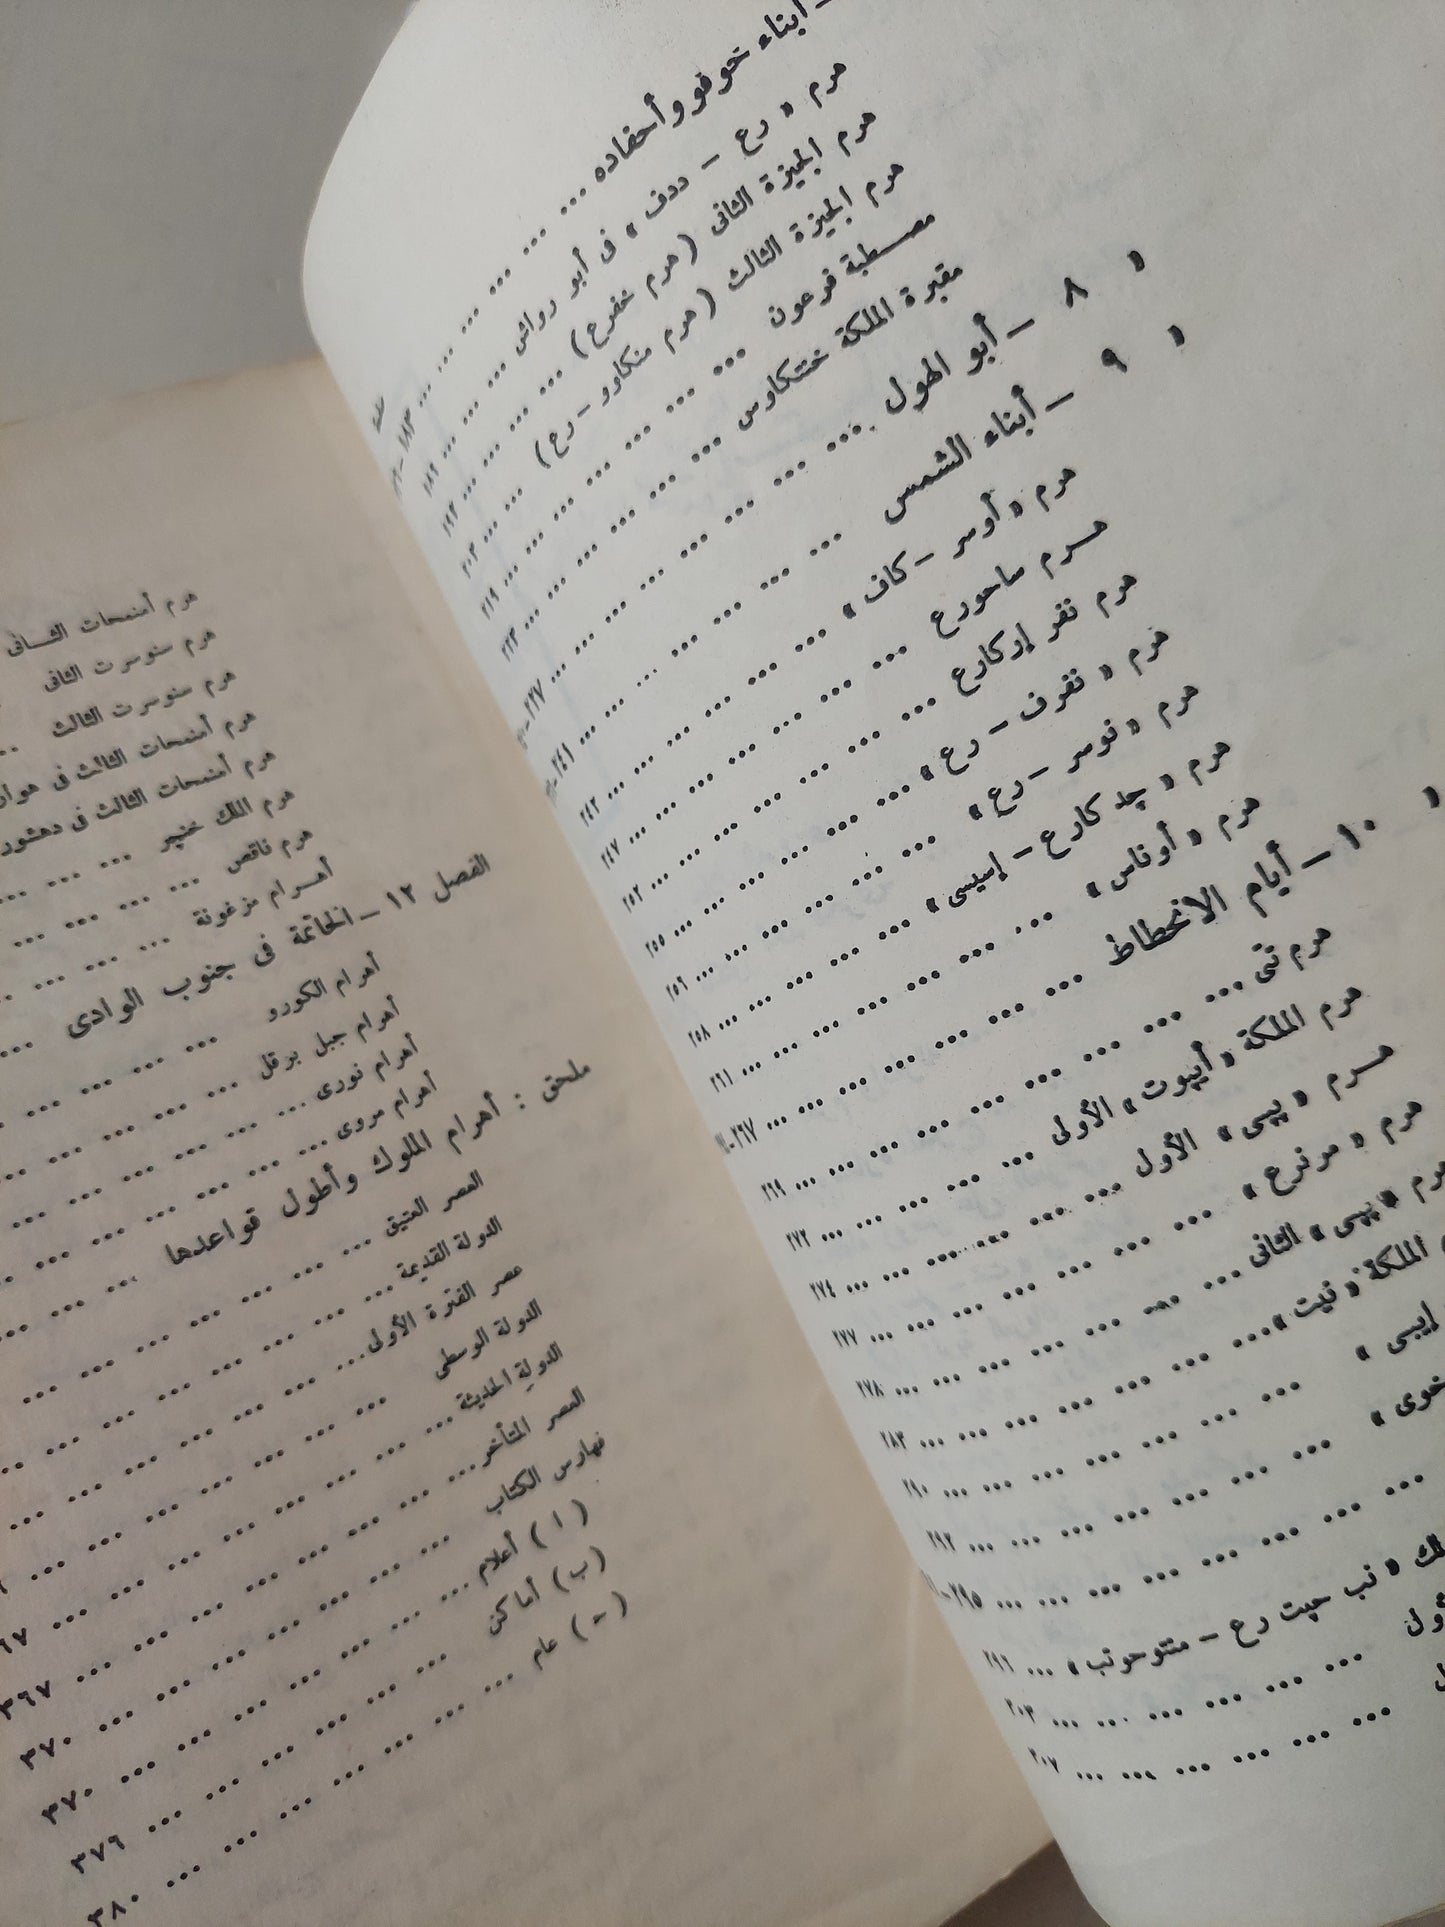 صفحة
– أبناء خوفو وأحفاده ... ... ... ... ... ... ١٨٣ –
هرم « رع – ددف » فى أبو رواش ... ... ... ١٨٩
هرم الجيزة الثانى ( هرم خفرع ) ... ... ... ... ١٩٣
هرم الجيزة الثالث ( هرم منكاوو – رع ) ... ... ٢٠٣
مصطبة فرعون ... ... ... ... ... ... ... ٢١٩
مقبرة الملكة خنتكاوس ... ... ... ... ... ... ٢٢٣
« ٨ – أبو الهول ... ... ... ... ... ... ... ٢٢٧ –
« ٩ – أبناء الشمس ... ... ... ... ... ... ... ٢٤١ –
هرم « أوسر – كاف » ... ... ... ... ... ... ٢٤٢
هرم ساحورع ... ... ... ... ... ... ... ٢٤٧
هرم نفر إركارع ... ... ... ... ... ... ... ٢٥٢
هرم « نفرف – رع » ... ... ... ... ... ... ٢٥٥
هرم « نوسر – رع » ... ... ... ... ... ... ٢٥٦
هرم « چد كارع – إسيسى » ... ... ... ... ... ٢٥٨
هرم « أوناس » ... ... ... ... ... ... ... ٢٦١
« ١٠ – أيام الانحطاط ... ... ... ... ... ... ... ٢٦٧ –
هرم تتى ... ... ... ... ... ... ... ... ٢٦٩
هرم الملكة « أيبوت » الأولى ... ... ... ... ... ٢٧٢
هرم « بيبى » الأول ... ... ... ... ... ... ٢٧٤
هرم « مرنرع » ... ... ... ... ... ... ... ٢٧٧
هرم « بيبى » الثانى ... ... ... ... ... ... ٢٧٨
الملكة « نيت » ... ... ... ... ... ... ... ٢٨٣
إيبى » ... ... ... ... ... ... ... ٢٩٠
خوى » ... ... ... ... ... ... ... ٢٩٢
... ... ... ... ... ... ... ... ٢٩٥ –
« نب حپت رع – منتوحوتب » ... ٢٩٦
... ... ... ... ... ... ٣٠٣
... ... ... ... ... ... ٣٠٧
هرم أمنمحات الثانى
هرم سنوسرت الثانى
هرم سنوسرت الثالث ...
هرم أمنمحات الثالث فى هوارة
هرم أمنمحات الثالث فى دهشور
هرم الملك خنچر ... ... ...
هرم ناقص ... ... ... ...
أهرام مزغونة ... ... ... ...
الفصل ١٢ – الخاتمة فى جنوب الوادى ...
أهرام الكورو ... ... ... ... ...
أهرام جبل برقل ... ... ... ... ...
أهرام نورى ... ... ... ... ... ...
أهرام مروى ... ... ... ... ... ...
ملحق : أهرام الملوك وأطول قواعدها ... ... ...
العصر العتيق ... ... ... ... ... ...
الدولة القديمة ... ... ... ... ... ...
عصر الفترة الأولى ... ... ... ... ... ...
الدولة الوسطى ... ... ... ... ... ...
الدولة الحديثة ... ... ... ... ... ... ٣٦٧
العصر المتأخر ... ... ... ... ... ... ٣٦٧
فهارس الكتاب ... ... ... ... ... ... ٣٧٠
( ا ) أعلام ... ... ... ... ... ... ٣٧٠
( ب ) أماكن ... ... ... ... ... ... ٣٧٩
( ج ) عام ... ... ... ... ... ... ٣٨٠